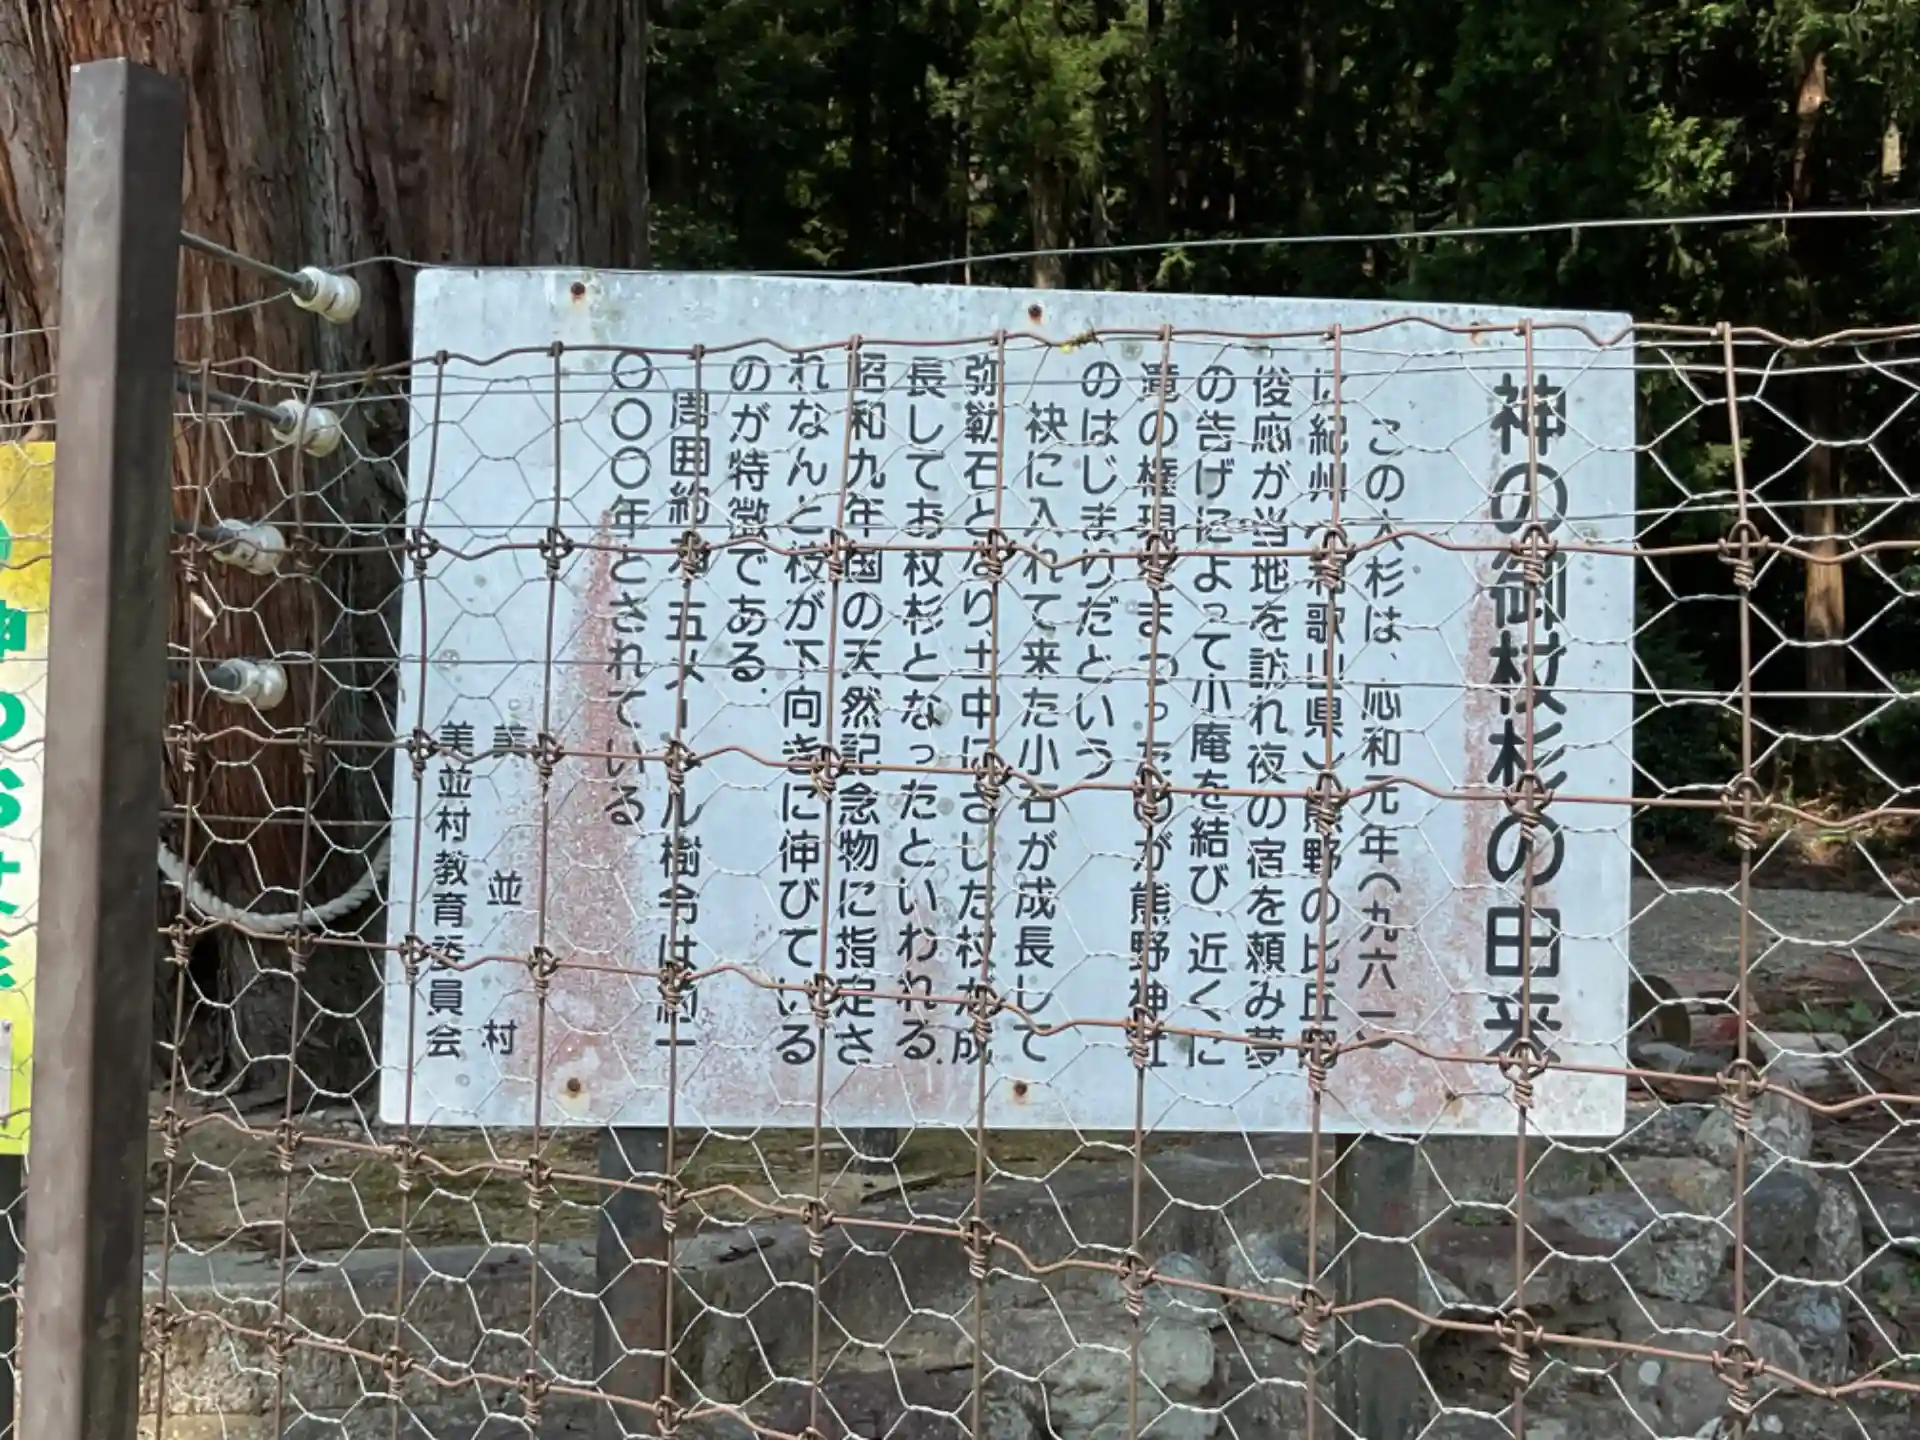 神の御杖杉の由来
この大杉は、応和元年(九六一)
に紀州(和歌山県)熊野の比丘尼
俊応が当地を訪れ夜の宿を頼み夢
の告げによって小庵を結び近くに
滝の権現をまつったのが熊野神社
のはじまりだという
袂に入れて来た小石が成長して
弥勒石となり、土中にさした杖が成
長してお杖杉となったといわれる.
昭和九年国の天然記念物に指定さ
れなんと枝が下向きに伸びている
のが特徴である.
周囲約 五メートル樹令は約一
〇〇〇年とされている
美並村
美並村教育委員会